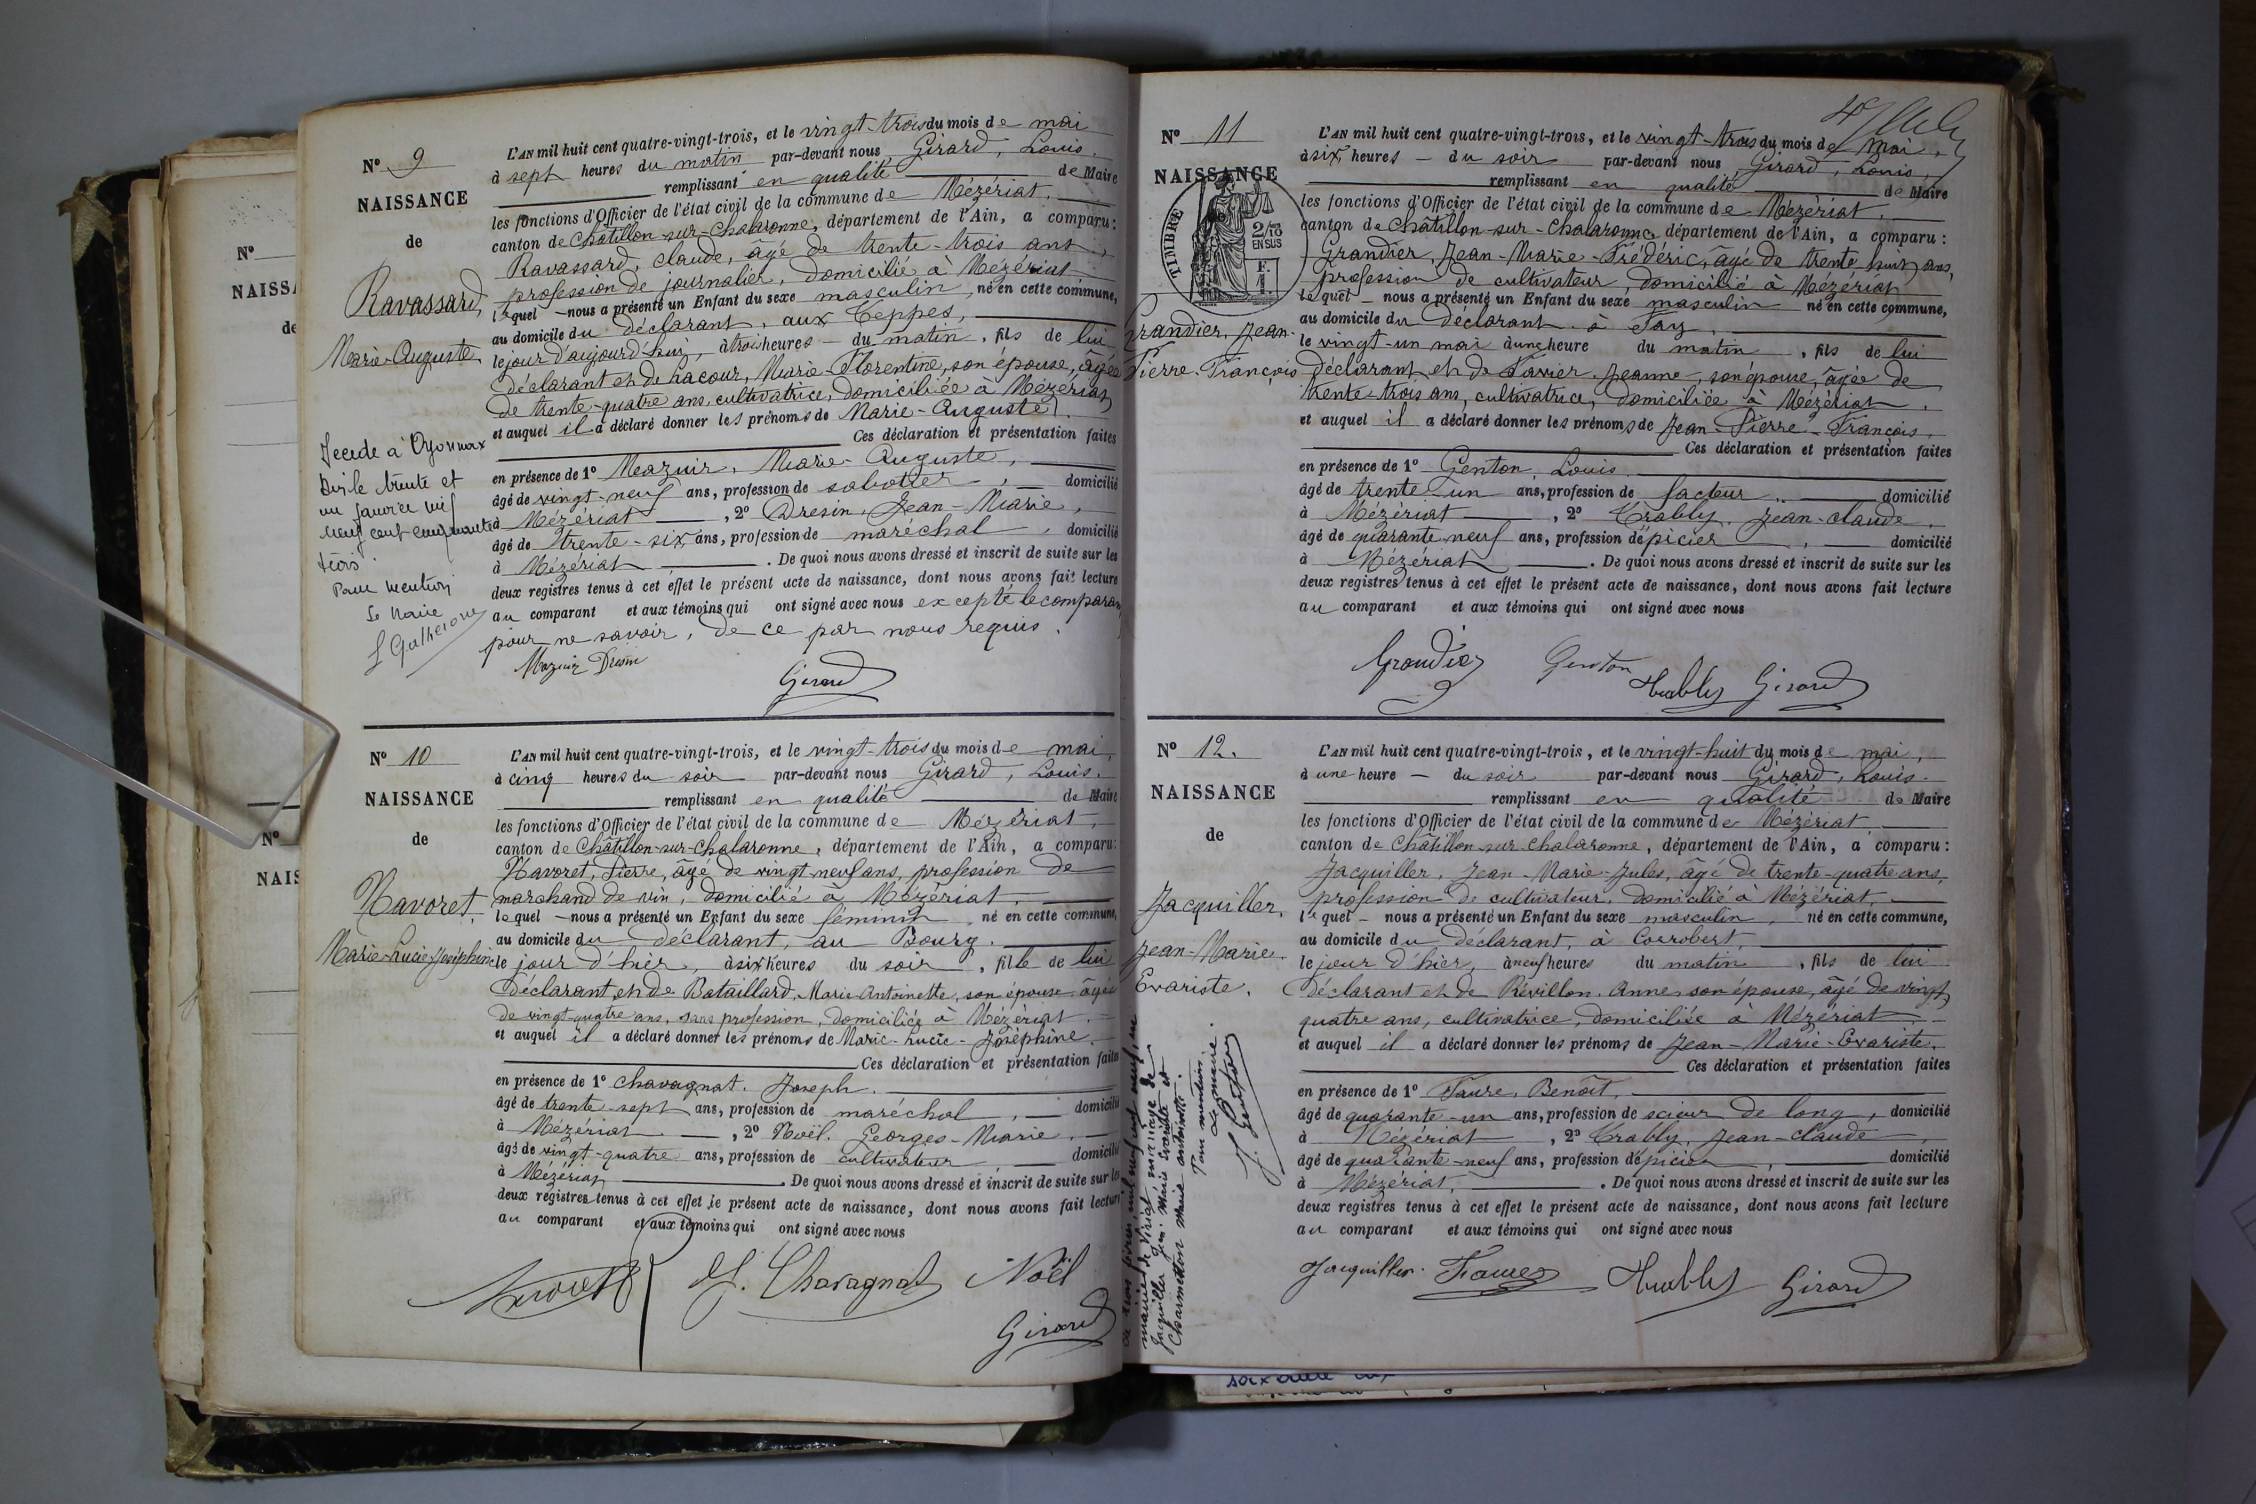 N° 9
NAISSANCE
de
Ravassard,
Marie-Auguste
Décédé à Oyonnax
le trente et
un janvier mil
neuf cent cinquante
trois.
Pour mention
Le Maire
L'AN mil huit cent quatre-vingt-trois, et le vingt-trois du mois de mai
à sept heures du matin par-devant nous Girard, Louis.
remplissant en qualité de Maire
les fonctions d'Officier de l'état civil de la commune de Mézériat,
canton de Châtillon-sur-Chalaronne, département de l'Ain, a comparu:
Ravassard, Claude, âgé de trente-trois ans,
profession de journalier, domicilié à Mézériat
lequel nous a présenté un Enfant du sexe masculin, né en cette commune,
au domicile du déclarant, aux Teppes,
le jour d'aujourd'hui, à trois heures du matin, fils de lui
déclarant et de Lacour, Marie-Florentine, son épouse, âgée
de trente-quatre ans, cultivatrice, domiciliée à Mézériat
et auquel il a déclaré donner les prénoms de Marie-Auguste.
Ces déclaration et présentation faites
en présence de 1° Mazuir, Marie-Auguste,
âgé de vingt-neuf ans, profession de sabotier, domicilié
à Mézériat, 2° Dresin, Jean-Marie,
âgé de trente-six ans, profession de maréchal, domicilié
à Mézériat. De quoi nous avons dressé et inscrit de suite sur les
deux registres tenus à cet effet le présent acte de naissance, dont nous avons fait lecture
au comparant et aux témoins qui ont signé avec nous excepté le comparant
pour ne savoir, de ce par nous requis.
Mazuir Dresin
Girard
N° 10
NAISSANCE
de
Navoret,
Marie-Lucie-Joséphine
L'AN mil huit cent quatre-vingt-trois, et le vingt-trois du mois de mai,
à cinq heures du soir par-devant nous Girard, Louis.
remplissant en qualité de Maire
les fonctions d'Officier de l'état civil de la commune de Mézériat,
canton de Châtillon-sur-Chalaronne, département de l'Ain, a comparu:
Navoret, Pierre, âgé de vingt-neuf ans, profession de
marchand de vin, domicilié à Mézériat,
lequel nous a présenté un Enfant du sexe féminin, né en cette commune,
au domicile du déclarant, au Bourg.
le jour d'hier, à six heures du soir, fille de lui
déclarant et de Bataillard, Marie Antoinette, son épouse, âgée
de vingt-quatre ans, sans profession, domiciliée à Mézériat.
et auquel il a déclaré donner les prénoms de Marie-Lucie-Joséphine.
Ces déclaration et présentation faites
en présence de 1° Chavagnat. Joseph.
âgé de trente-sept ans, profession de maréchal, domicilié
à Mézériat, 2° Noël. Georges-Marie,
âgé de vingt-quatre ans, profession de cultivateur, domicilié
à Mézériat. De quoi nous avons dressé et inscrit de suite sur les
deux registres tenus à cet effet le présent acte de naissance, dont nous avons fait lecture
au comparant et aux témoins qui ont signé avec nous
Navoret J. Chavagnat Noël
Girard
N° 11
NAISSANCE
TIMBRE
2/10
EN SUS
F.
1
Grandier, Jean-
Pierre-François
L'AN mil huit cent quatre-vingt-trois, et le vingt-trois du mois de mai,
à six heures du soir par-devant nous Girard, Louis,
remplissant en qualité de Maire
les fonctions d'Officier de l'état civil de la commune de Mézériat,
canton de Châtillon-sur-Chalaronne, département de l'Ain, a comparu:
Grandier, Jean-Marie-Frédéric, âgé de trente huit ans,
profession de cultivateur, domicilié à Mézériat
lequel nous a présenté un Enfant du sexe masculin né en cette commune,
au domicile du déclarant à Fay,
le vingt-un mai à une heure du matin, fils de lui
déclarant et de Favier, Jeanne, son épouse, âgée de
trente-trois ans, cultivatrice, domiciliée à Mézériat.
et auquel il a déclaré donner les prénoms de Jean-Pierre-François.
Ces déclaration et présentation faites
en présence de 1° Genton, Louis
âgé de trente-un ans, profession de facteur, domicilié
à Mézériat, 2° Trably, Jean-Claude,
âgé de quarante neuf ans, profession d'épicier, domicilié
à Mézériat. De quoi nous avons dressé et inscrit de suite sur les
deux registres tenus à cet effet le présent acte de naissance, dont nous avons fait lecture
au comparant et aux témoins qui ont signé avec nous
Grandier Genton Trably Girard
N° 12.
NAISSANCE
de
Jacquiller,
Jean-Marie-
Evariste.
mairie de Viriat mariage de
Jacquiller Jean Marie Evariste et
Charmetton Marie Antoinette.
Pour mention:
Le maire.
L'AN mil huit cent quatre-vingt-trois, et le vingt-huit du mois de mai,
à une heure du soir par-devant nous Girard, Louis.
remplissant en qualité de Maire
les fonctions d'Officier de l'état civil de la commune de Mézériat
canton de Châtillon-sur-Chalaronne, département de l'Ain, a comparu:
Jacquiller, Jean-Marie-Jules, âgé de trente-quatre ans,
profession de cultivateur, domicilié à Mézériat,
lequel nous a présenté un Enfant du sexe masculin, né en cette commune,
au domicile du déclarant, à Corrobert,
le jour d'hier, à neuf heures du matin, fils de lui
déclarant et de Révillon, Anne, son épouse, âgé de vingt
quatre ans, cultivatrice, domiciliée à Mézériat,
et auquel il a déclaré donner les prénoms de Jean-Marie-Evariste.
Ces déclaration et présentation faites
en présence de 1° Faure, Benoît,
âgé de quarante-un ans, profession de scieur de long, domicilié
à Mézériat, 2° Trably, Jean-Claude,
âgé de quarante-neuf ans, profession d'épicier, domicilié
à Mézériat. De quoi nous avons dressé et inscrit de suite sur les
deux registres tenus à cet effet le présent acte de naissance, dont nous avons fait lecture
au comparant et aux témoins qui ont signé avec nous
Jacquiller. Faure Trably Girard
N°
NAISSA
de
N°
NAIS